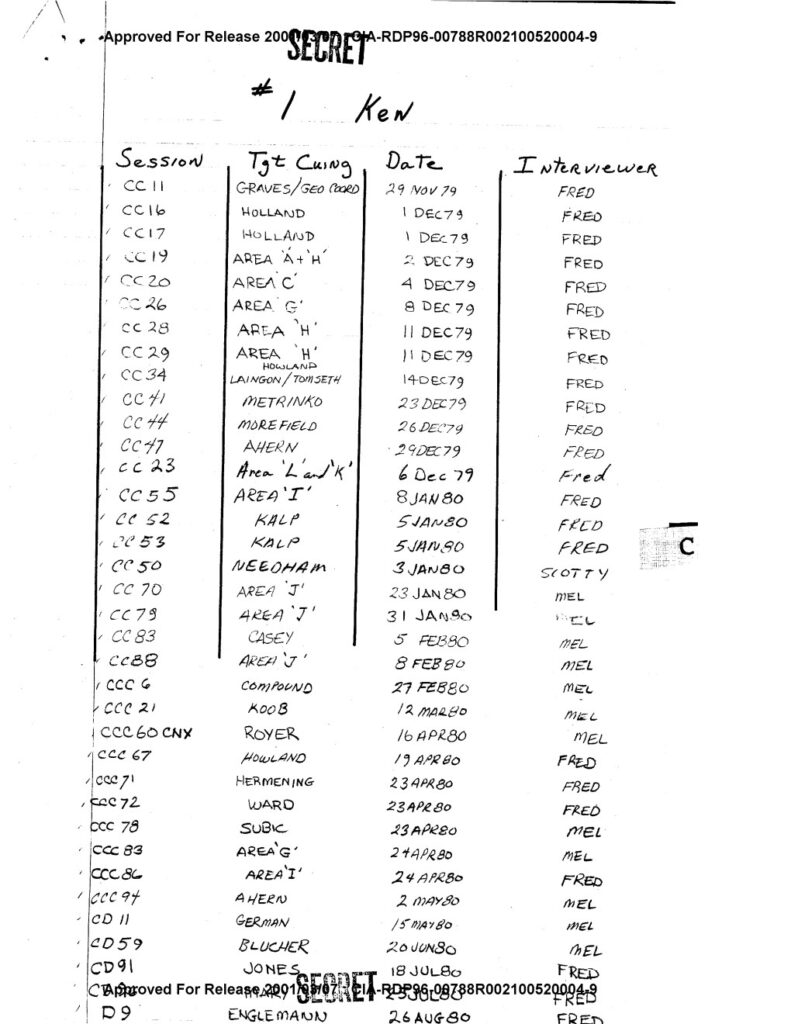 Approved For Release 2001/03/07 : CIA-RDP96-00788R002100520004-9
SECRET
# 1 Ken
Session Tgt Cuing Date Interviewer
CC 11 GRAVES/GEO COORD 29 NOV 79 FRED
CC16 HOLLAND 1 DEC79 FRED
CC17 HOLLAND 1 DEC79 FRED
CC19 AREA 'A'+'H' 2 DEC79 FRED
CC20 AREA 'C' 4 DEC79 FRED
CC26 AREA 'G' 8 DEC 79 FRED
CC28 AREA 'H' 11 DEC79 FRED
CC29 AREA 'H' 11 DEC79 FRED
HOWLAND
CC34 LAINGON/TOMSETH 14DEC79 FRED
CC41 METRINKO 23DEC79 FRED
CC44 MOREFIELD 26DEC79 FRED
CC47 AHERN 29DEC79 FRED
CC 23 Area 'L' and 'K' 6 Dec 79 Fred
CC55 AREA 'I' 8JAN80 FRED
CC 52 KALP 5JAN80 FRED
CC 53 KALP 5JAN80 FRED
CC 50 NEEDHAM 3JAN80 SCOTTY
CC 70 AREA 'J' 23JAN80 MEL
CC 79 AREA 'J' 31 JAN80 MEL
CC 83 CASEY 5 FEB80 MEL
CC88 AREA 'J' 8 FEB80 MEL
CCC 6 COMPOUND 27 FEB80 MEL
CCC 21 KOOB 12 MAR80 MEL
CCC60 CNX ROYER 16APR80 MEL
CCC 67 HOWLAND 19APR80 FRED
CCC71 HERMENING 23APR80 FRED
CCC72 WARD 23APR80 FRED
CCC 78 SUBIC 23APR80 MEL
CCC83 AREA 'G' 24APR80 MEL
CCC86 AREA 'I' 24APR80 FRED
CCC94 AHERN 2 MAY80 MEL
CD11 GERMAN 15MAY80 MEL
CD59 BLUCHER 20JUN80 MEL
CD91 JONES 18JUL80 FRED
SECRET
Approved For Release 2001/03/07 : CIA-RDP96-00788R002100520004-9
25JUL80 FRED
D9 ENGLEMANN 26AUG80 FRED
C